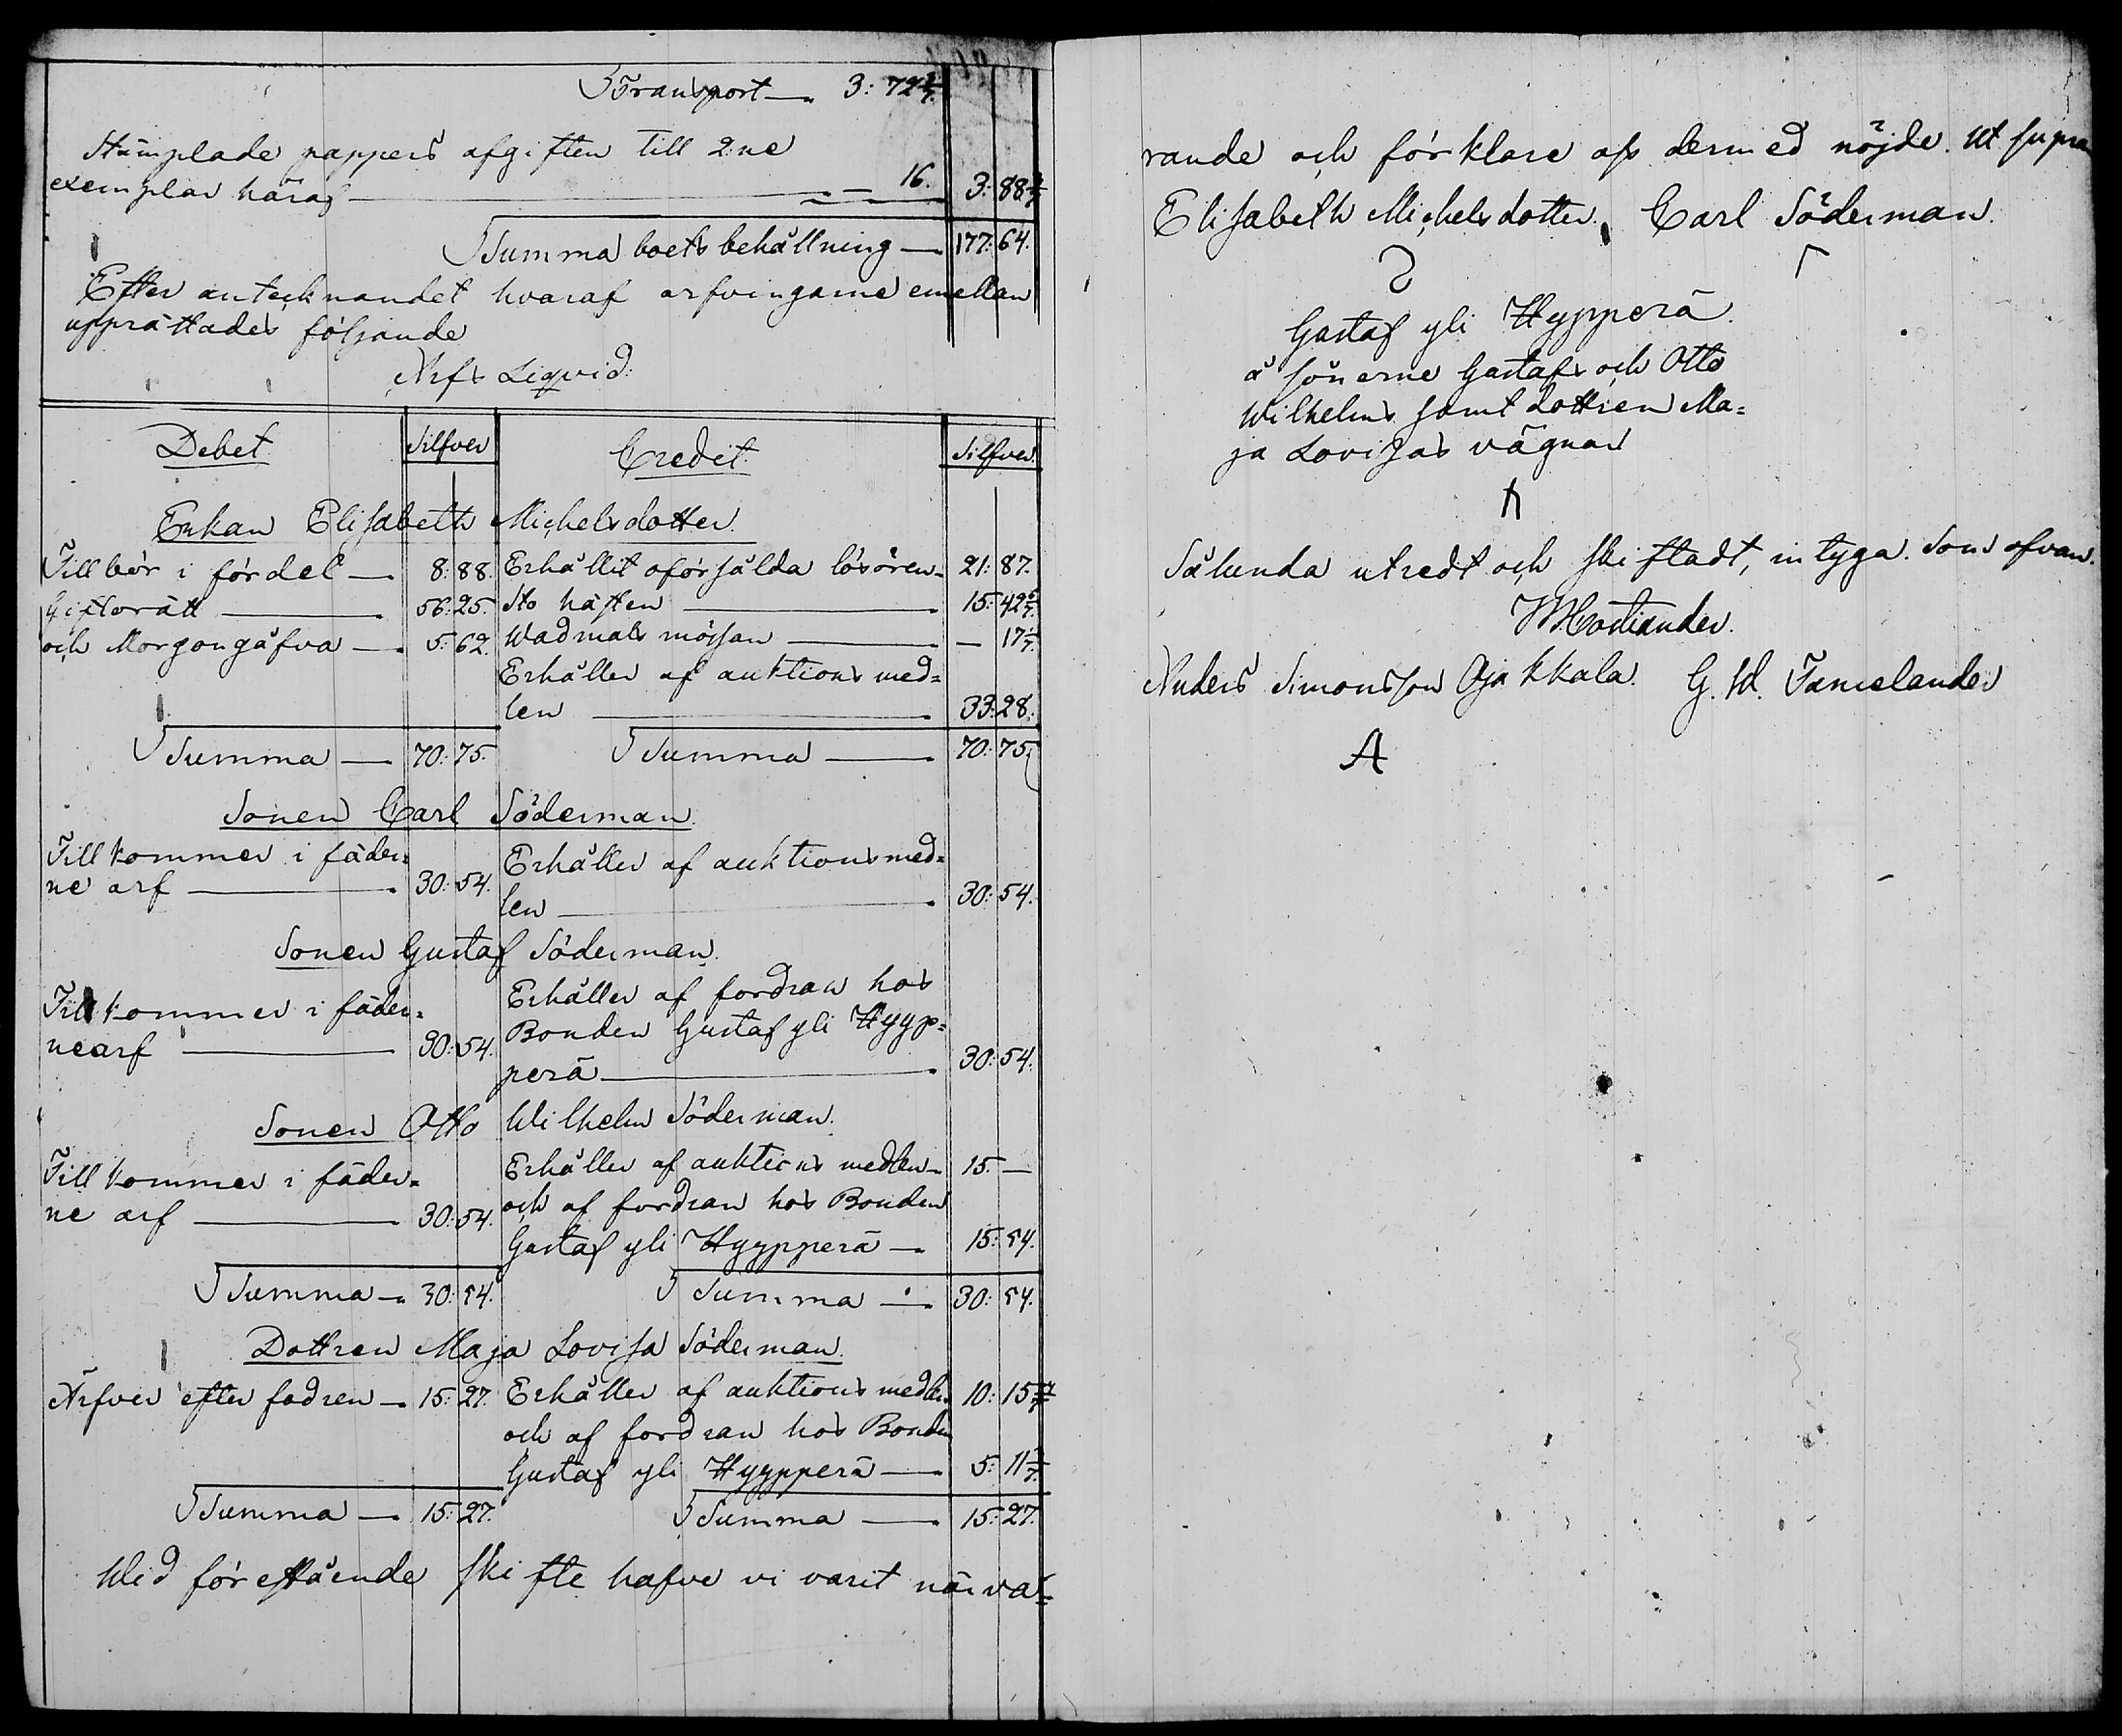 Transport — 3: 72 2/7.
Stämplade pappers afgiften till 2:ne
exemplar häraf — — 16. 3: 88 2/7
Summa boets behållning — 177: 64.
Efter antecknandet hvaraf arfvingarne emellan
upprättades följande
Arfs Liqvid:
Debet Silfver Credit Silfver.
Enkan Elisabeth Michelsdotter.
Tillbör i fördel — 8: 88. Erhållit oförsålda lösören — 21: 87.
Giftorätt — 56: 25. Sto hästen — 15: 42 6/7.
och Morgongåfva — 5: 62. Wadmals mössan — — 17 1/7.
Erhåller af auktions med=
len — 33: 28.
Summa — 70: 75. Summa — 70: 75.
Sonen Carl Söderman.
Till kommer i fäder= Erhåller af auktions med=
ne arf — 30: 54. len — 30: 54.
Sonen Gustaf Söderman.
Till kommer i fäder= Erhåller af fordran hos
nearf — 30: 54. Bonden Gustaf yli Hyyp=
perä — 30: 54.
Sonen Otto Wilhelm Söderman.
Till kommer i fäder= Erhåller af auktions medlen — 15. —
ne arf — 30: 54. och af fordran hos Bonden
Gustaf yli Hyypperä — 15: 54.
Summa — 30: 54. Summa — 30: 54.
Dottren Maja Lovisa Söderman.
Ärfver efter fadren — 15: 27. Erhåller af auktions medlen 10: 15 5/7
och af fordran hos Bonden
Gustaf yli Hyypperä — 5: 11 2/7.
Summa — 15: 27. Summa — 15: 27.
Wid förestående skifte hafve vi varit närva=
rande och förklare oss dermed nöjde. Ut supra
Elisabeth Michelsdotter. Carl Söderman.
Gustaf yli Hyypperä.
å sönerne Gustafs och Otto
Wilhelms samt dottren Ma=
ja Lovisas vägnar
Sålunda utredt och skiftadt, intyga. Som ofvan.
Anders Simonsson Ojakkala. G. W. Tamelander
A